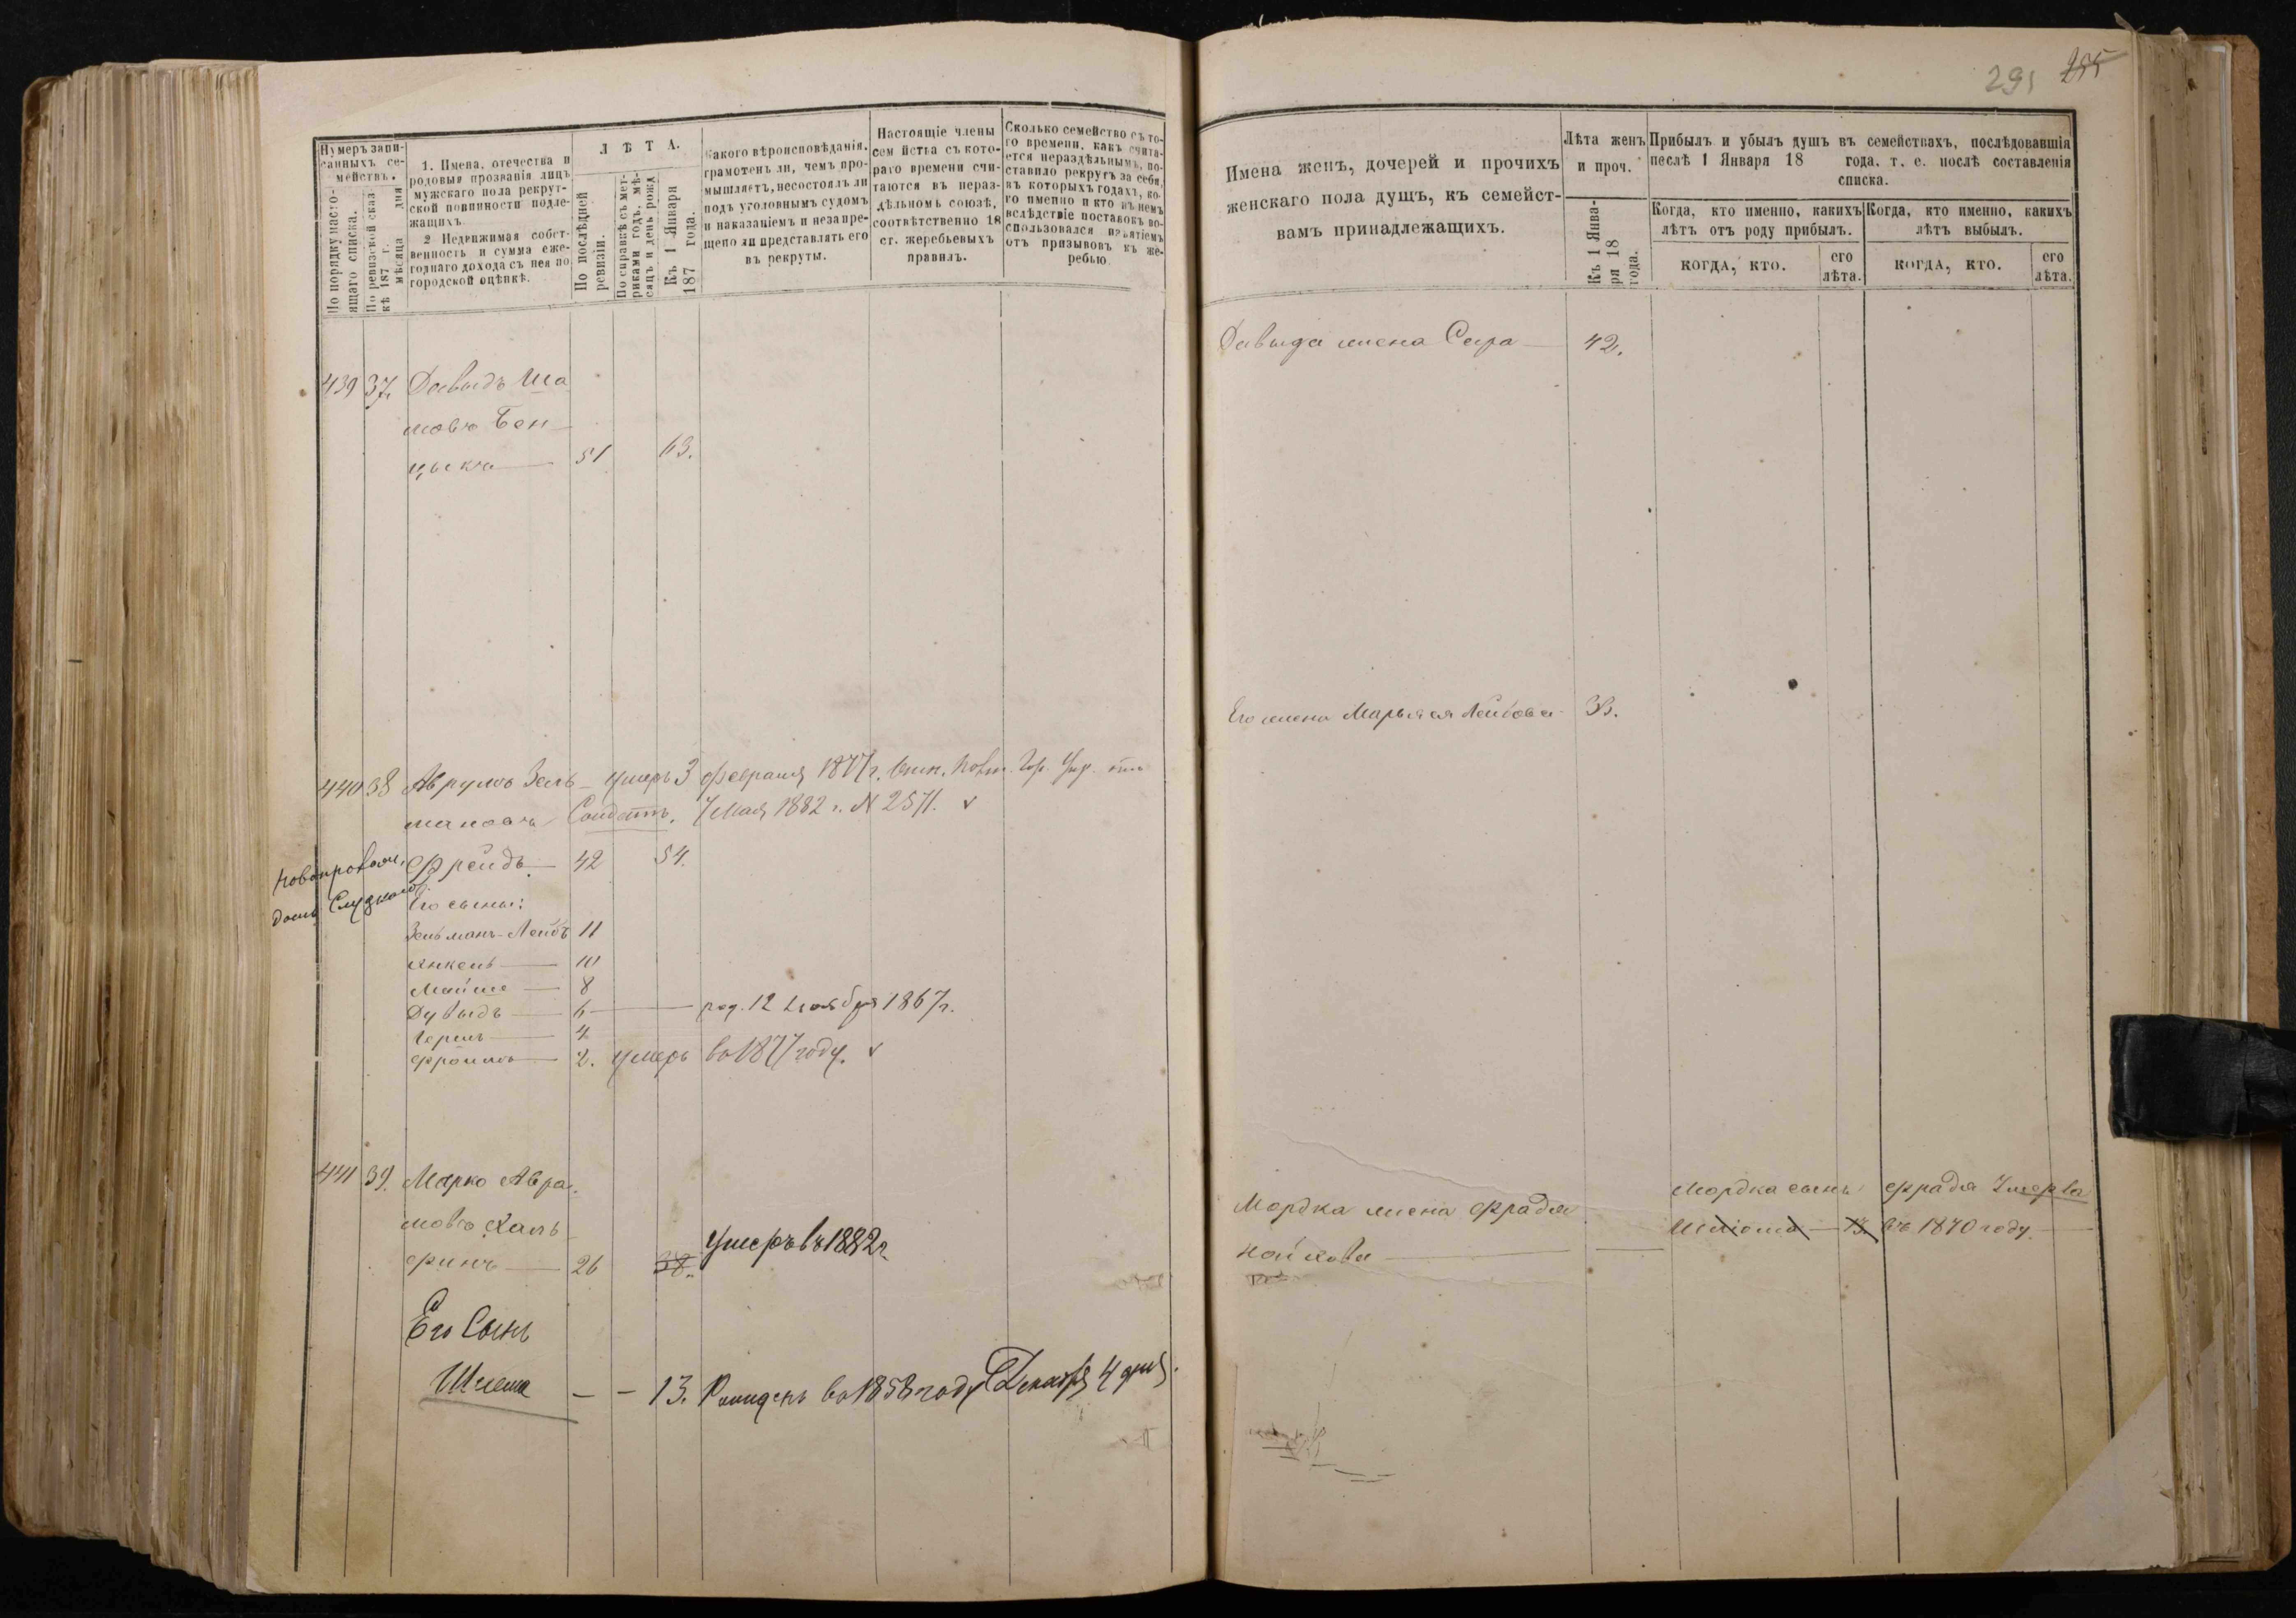 Нумеръ запи-
санныхъ се-
мействъ.
По порядку насто-
ящаго списка.
По ревизской сказ
кѣ 187 г.
мѣсяца дня
1. Имена, отечества и
родовыя прозванія лицъ
мужскаго пола рекрут-
ской повинности подле-
жащихъ.
2 Недвижимая собст-
венность и сумма еже-
годнаго дохода съ нея по
городской оцѣнкѣ.
ЛѢТА.
По послѣдней
ревизіи.
По справкѣ съ мет-
риками годъ, мѣ-
сяцъ и день рожд
Къ 1 Января
187 года.
Какого вѣроисповѣданія,
грамотенъ ли, чемъ про-
мышляетъ, несостоялъ ли
подъ уголовнымъ судомъ
и наказаніемъ и незапре-
щено ли представлять его
въ рекруты.
Настоящіе члены
сем йства съ кото-
раго времени счи-
таются въ нераз-
дѣльномъ союзѣ,
соотвѣтственно 18
ст. жеребьевыхъ
правилъ.
Сколько семейство съ то-
го времени, какъ счита-
ется нераздѣльнымъ, по-
ставило рекрутъ за себя,
въ которыхъ годахъ, ко-
го именно и кто въ немъ
вслѣдствіе поставокъ во-
спользовался изъятіемъ
отъ призывовъ къ же-
ребью
439 37. Давыдъ Ша
мовъ Бен-
цыкъ 51 63.
440 38 Аврумъ Зель- умеръ 3 февраля 1877 г.
мановъ Солдатъ. 7 Мая 1882 г. N 2571. v
Фрейдъ 42 54.
Его сыны:
Зельманъ-Лейбъ 11
Янкель 10
Мойше 8
Дувыдъ 6 род. 12 Ноября 1867 г.
Герель 4
Фроимъ 2. умеръ въ 1877 году. v
441 39. Марко Авра-
мовъ Халь
финъ 26 38. Умеръ въ 1882 г
Его Сынъ
Шлема - - 13. Рожденъ въ 1858 году Декабря 4 дня.
291 255
Имена женъ, дочерей и прочихъ
женскаго пола душъ, къ семейст-
вамъ принадлежащихъ.
Лѣта женъ
и проч.
Къ 1 Янва-
ря 18
года.
Прибылъ и убылъ душъ въ семействахъ, послѣдовавшія
песлѣ 1 Января 18 года. т. е. послѣ составленія
списка.
Когда, кто именно, какихъ
лѣтъ отъ роду прибылъ.
Когда, кто именно, какихъ
лѣтъ выбылъ.
КОГДА, КТО.
его
лѣта.
КОГДА, КТО.
его
лѣта.
Давыда жена Сара 42.
Его жена Марьяся Лейбова 33.
Мордка жена Фрадля
Мордка сынъ
Шліома 13.
Фрадля Умерла
въ 1870 году.